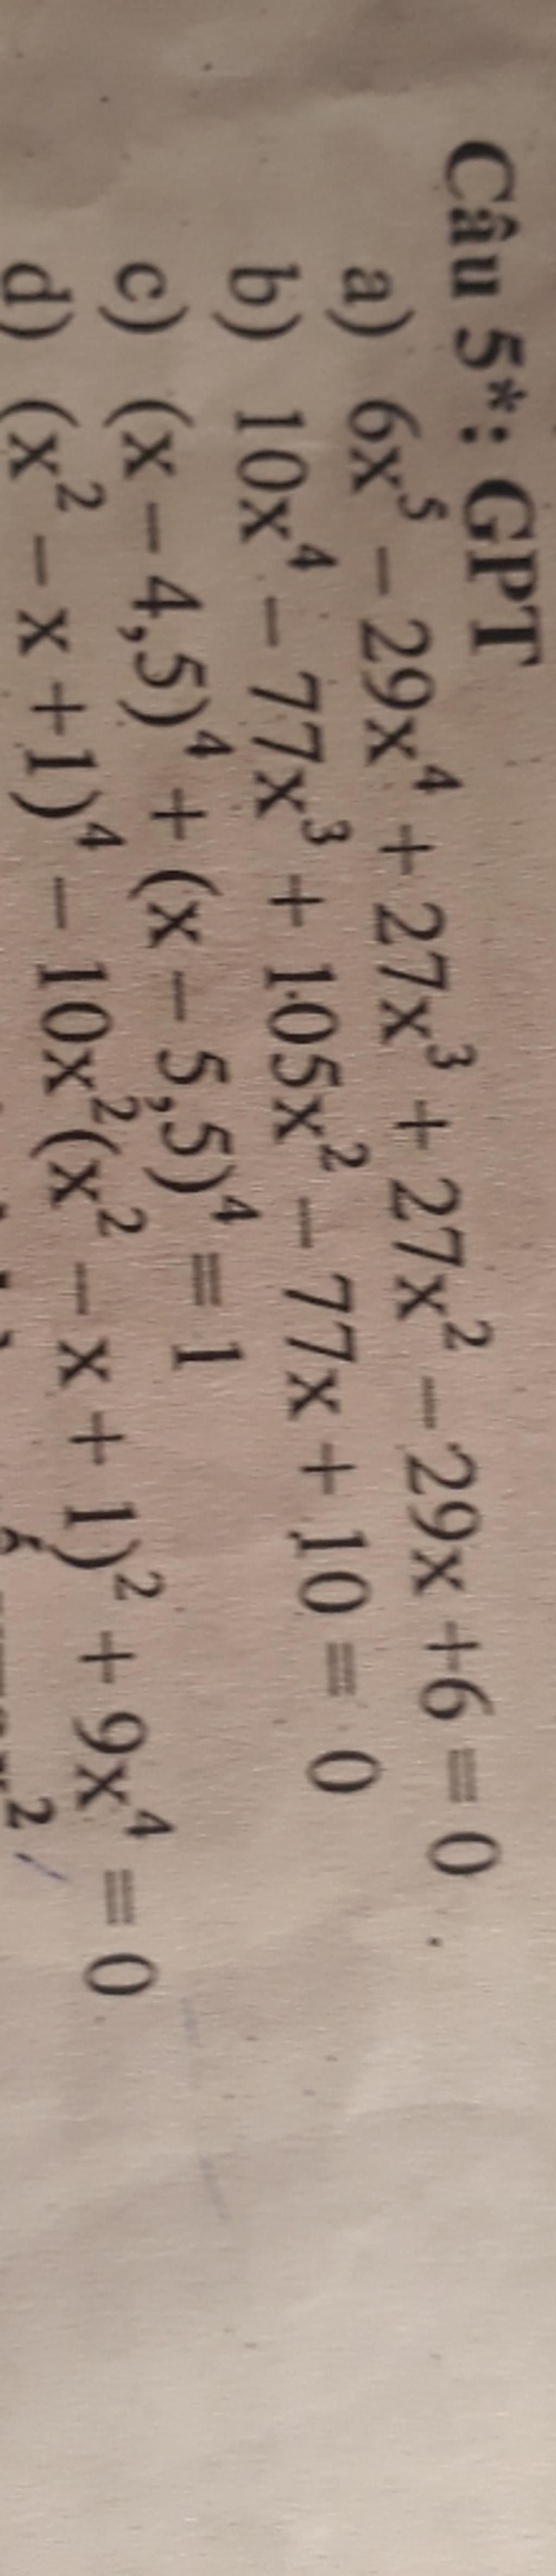 Câu 5*: GPT
a) 6x⁵ – 29x⁴ + 27x³ + 27x² – 29x +6 = 0
b) 10x⁴ – 77x³ + 105x² – 77x + 10 = 0
c) (x – 4,5)⁴ + (x – 5,5)⁴ = 1
d) (x² – x +1)⁴ – 10x²(x² – x + 1)² + 9x⁴ = 0